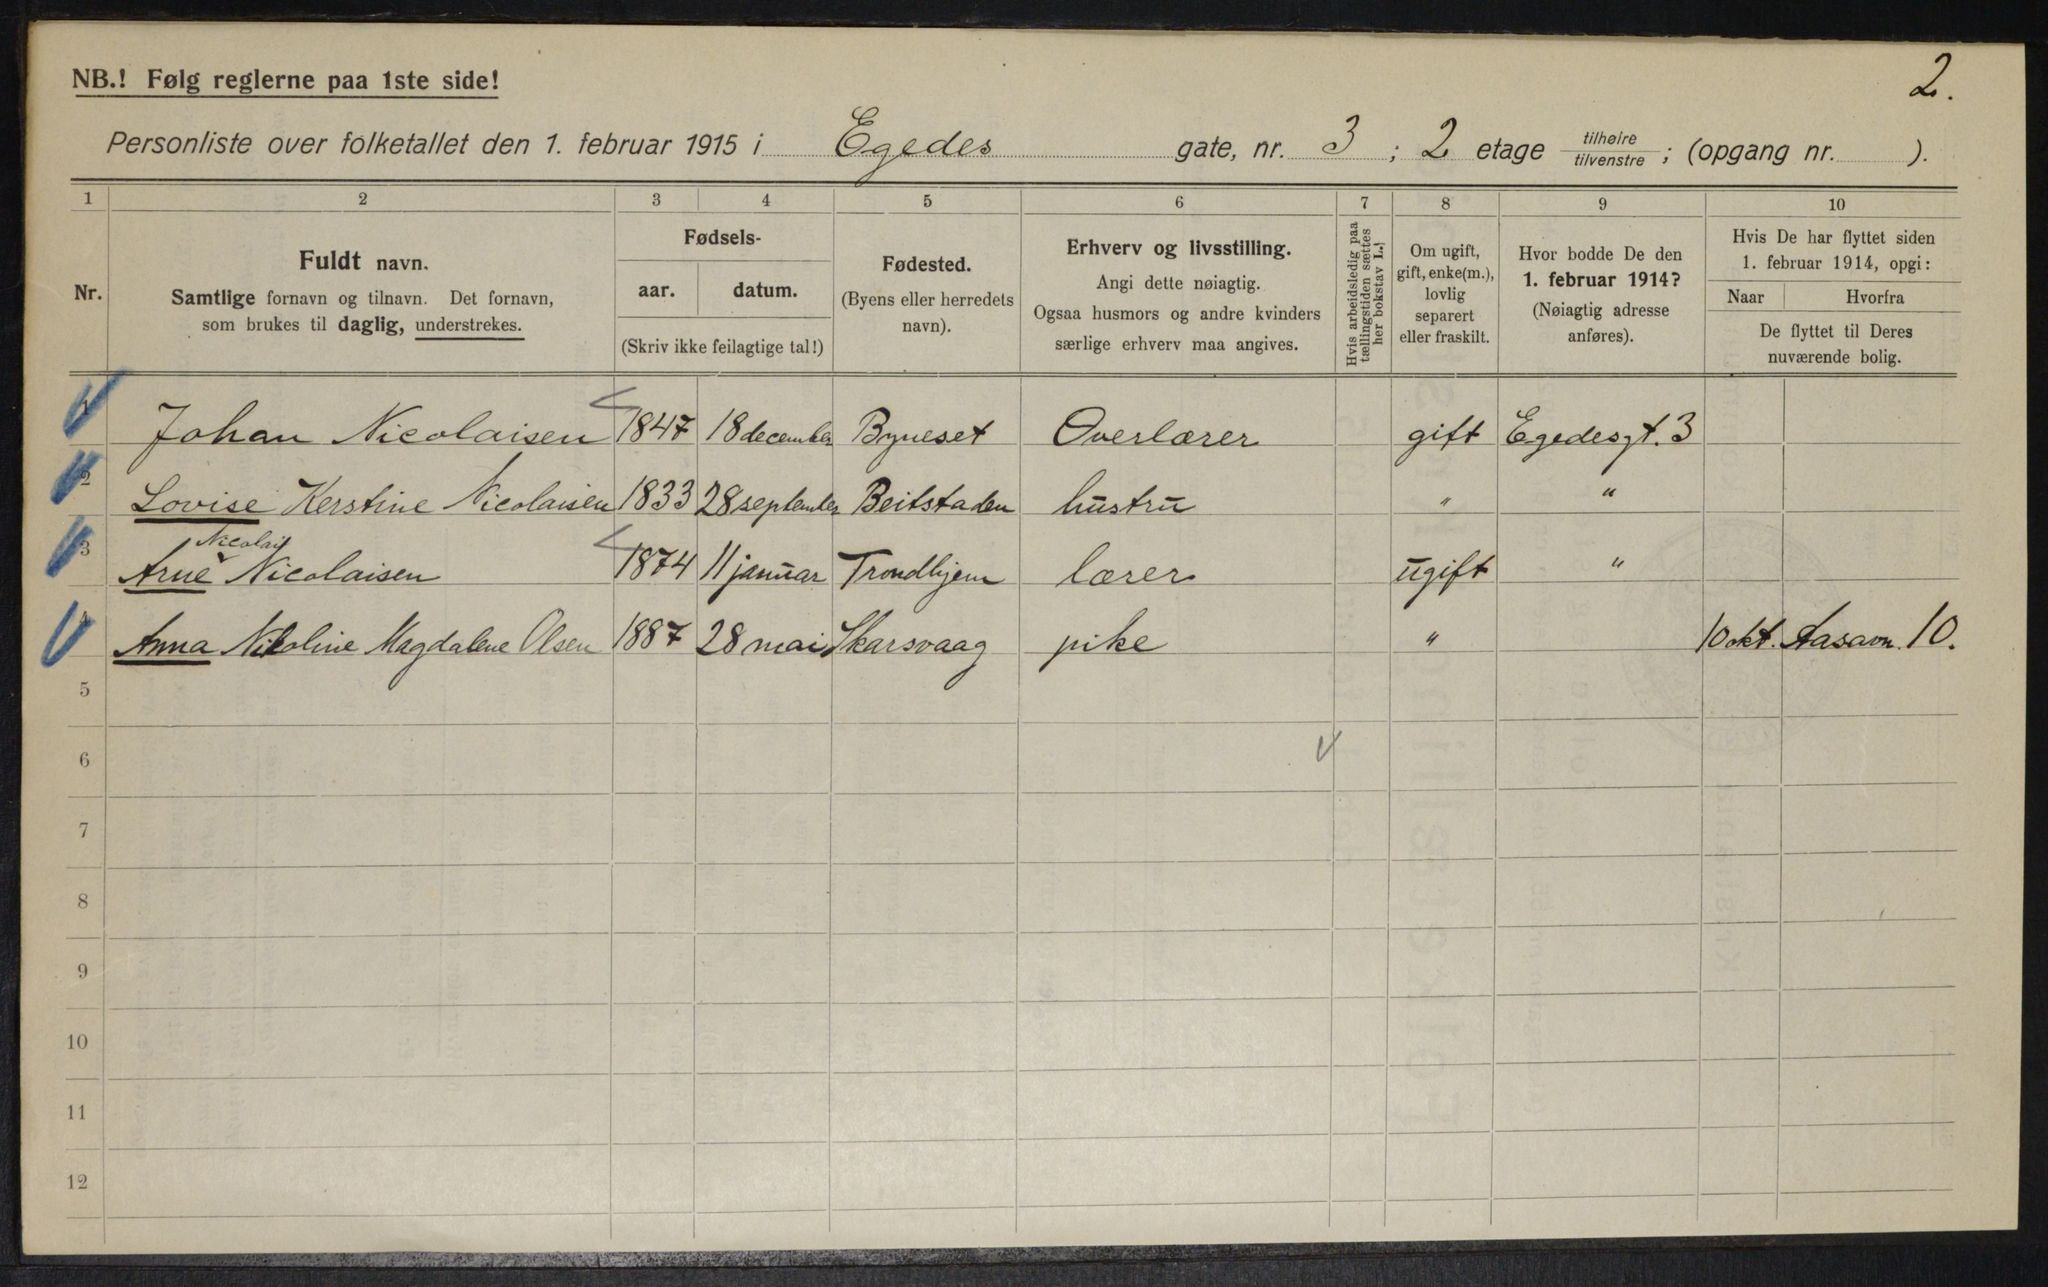 2.
NB.! Følg reglerne paa 1ste side!
Personliste over folketallet den 1. februar 1915 i Egedes gate, nr. 3; 2 etage tilhøire/tilvenstre; (opgang nr. ).
1 2 3 4 5 6 7 8 9 10
Nr.
Fuldt navn.
Samtlige fornavn og tilnavn. Det fornavn,
som brukes til daglig, understrekes.
Fødsels-
aar. datum.
(Skriv ikke feilagtige tal!)
Fødested.
(Byens eller herredets
navn).
Erhverv og livsstilling.
Angi dette nøiagtig.
Ogsaa husmors og andre kvinders
særlige erhverv maa angives.
Hvis arbeidsledig paa
tællingstiden sættes
her bokstav L.!
Om ugift,
gift, enke(m.),
lovlig
separert
eller fraskilt.
Hvor bodde De den
1. februar 1914?
(Nøiagtig adresse
anføres).
Hvis De har flyttet siden
1. februar 1914, opgi:
Naar Hvorfra
De flyttet til Deres
nuværende bolig.
1 Johan Nicolaisen 1847 18 december Byneset Overlærer gift Egedesgt. 3
2 Lovise Kerstine Nicolaisen 1833 28 september Beitstaden hustru " "
Nicolai
3 Arne Nicolaisen 1874 11 januar Trondhjem lærer ugift "
4 Anna Nikoline Magdalene Olsen 1887 28 mai Skarsvaag pike " 10 okt. Aasavn. 10.
5
6
7
8
9
10
11
12